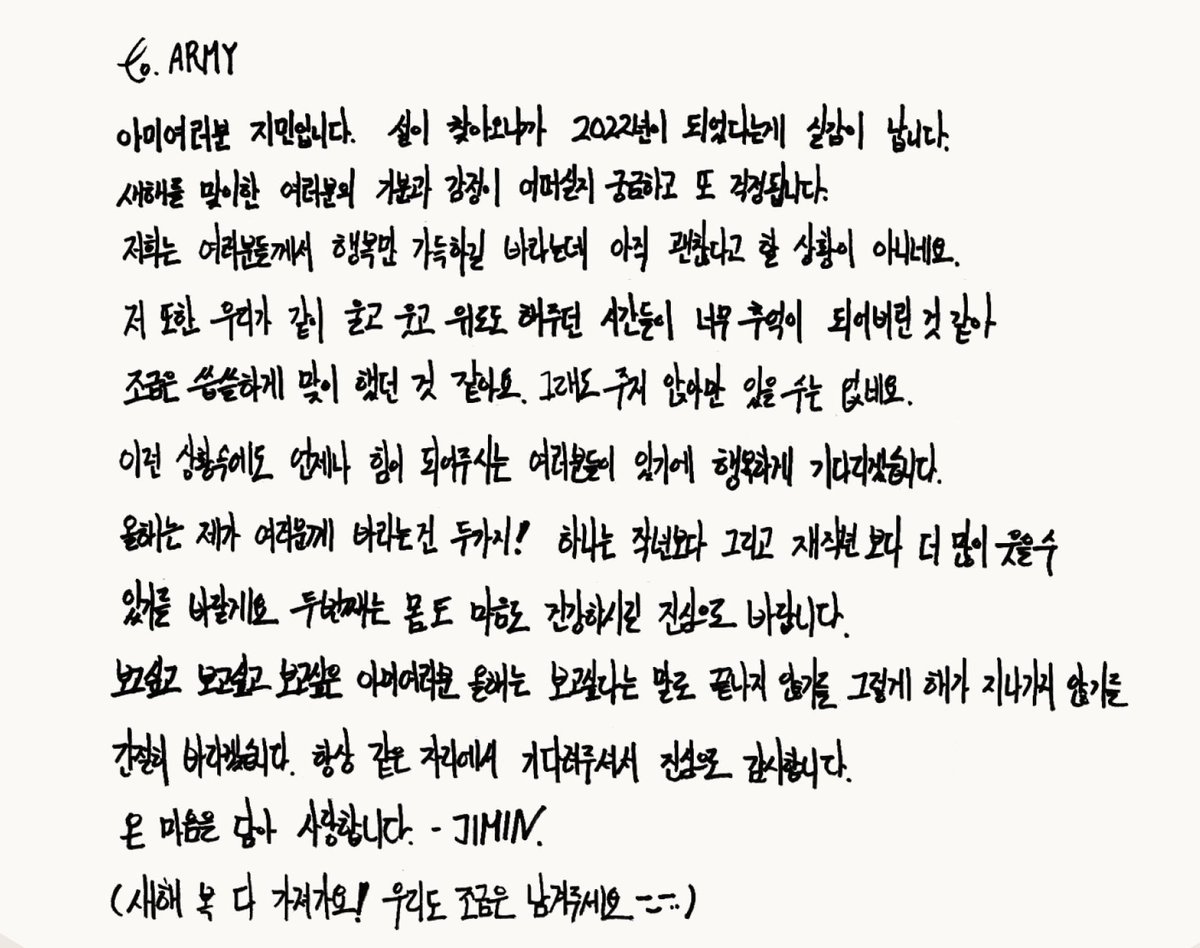 to. ARMY
아미여러분 지민입니다. 설이 찾아오니까 2022년이 되었다는게 실감이 납니다.
새해를 맞이한 여러분의 기분과 감정이 어떠실지 궁금하고 또 걱정됩니다.
저희는 여러분들께서 행복만 가득하길 바라는데 아직 괜찮다고 할 상황이 아니네요.
저 또한 우리가 같이 울고 웃고 위로도 해주던 시간들이 너무 추억이 되어버린 것 같아
조금은 씁쓸하게 맞이 했던 것 같아요. 그래도 주저 앉아만 있을 수는 없네요.
이런 상황속에도 언제나 힘이 되어주시는 여러분들이 있기에 행복하게 기다리겠습니다.
올해는 제가 여러분께 바라는건 두가지! 하나는 작년보다 그리고 재작년 보다 더 많이 웃을 수
있기를 바랄게요. 두번째는 몸도 마음도 건강하시길 진심으로 바랍니다.
보고싶고 보고싶고 보고싶은 아미여러분 올해는 보고싶다는 말로 끝나지 않기를 그렇게 해가 지나가지 않기를
간절히 바라겠습니다. 항상 같은 자리에서 기다려주셔서 진심으로 감사합니다.
온 마음을 담아 사랑합니다. - JIMIN.
(새해 복 다 가져가요! 우리도 조금은 남겨주세요 -_-..)